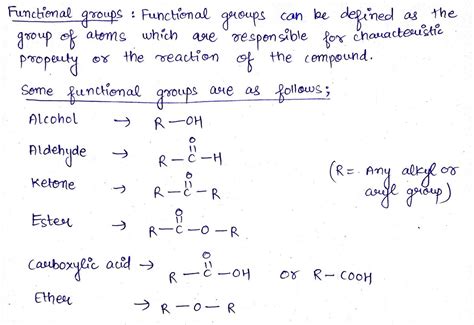 Functional groups : Functional groups can be defined as the
group of atoms which are responsible for characteristic
property or the reaction of the compound.
Some functional groups are as follows;
Alcohol → R—OH
Aldehyde → R—C—H
O
Ketone → R—C—R
O
Ester → R—C—O—R
O
(R= Any alkyl or
aryl group)
Carboxylic acid → R—C—OH or R—COOH
O
Ether → R—O—R